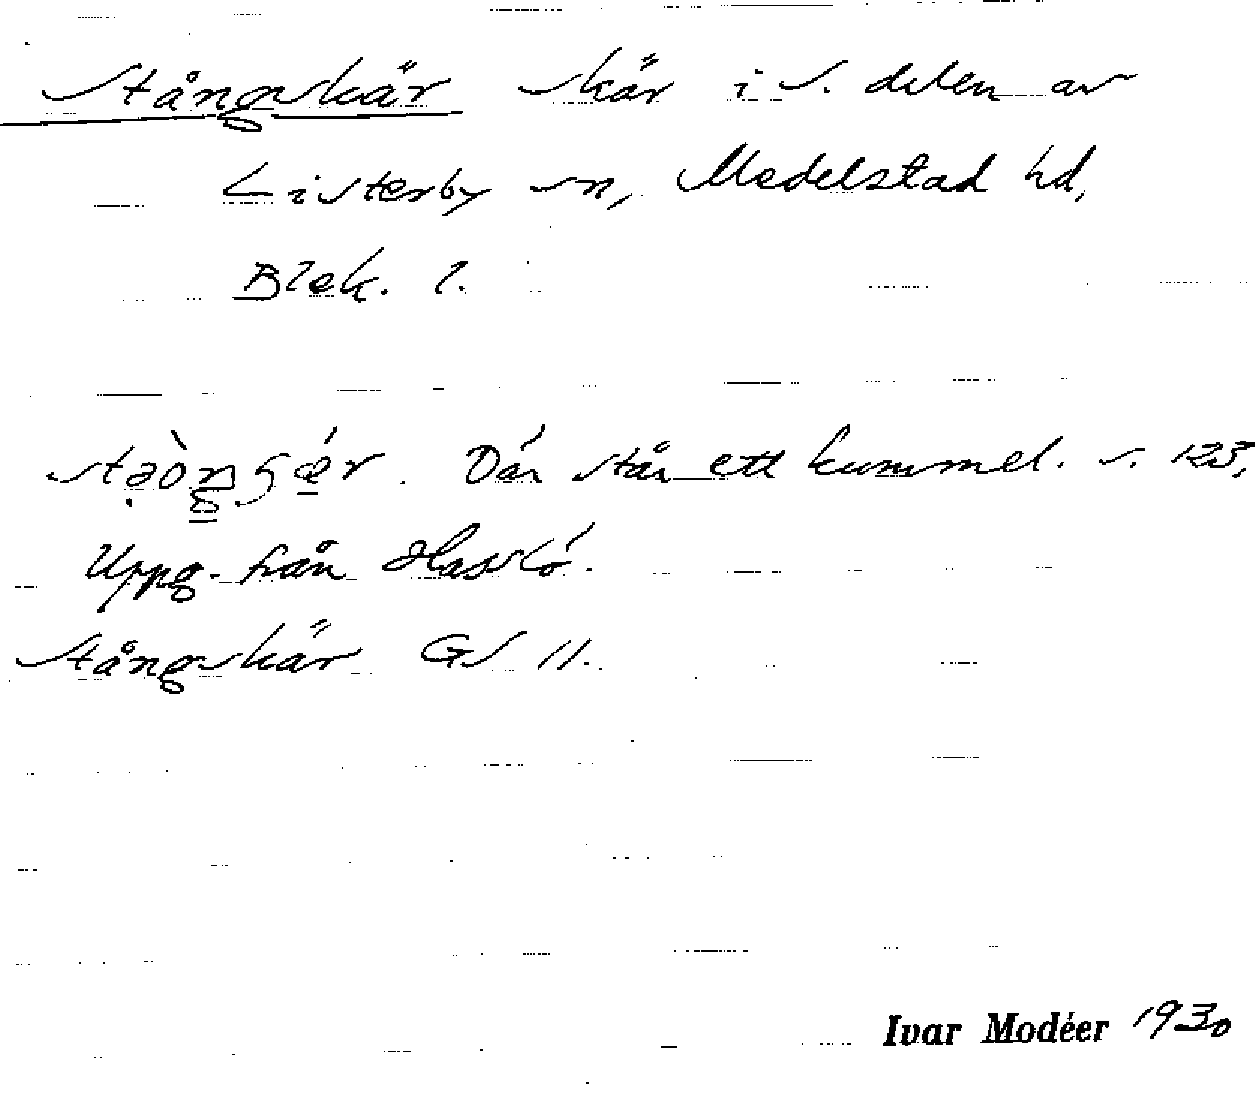 Stångskär skär i s. delen av
Listerby sn, Medelstad hd,
Blek. l.
Där står ett kummel. s. 123,
Uppg. från Hasslö.
Stångskär GS 11.
Ivar Modéer 1930